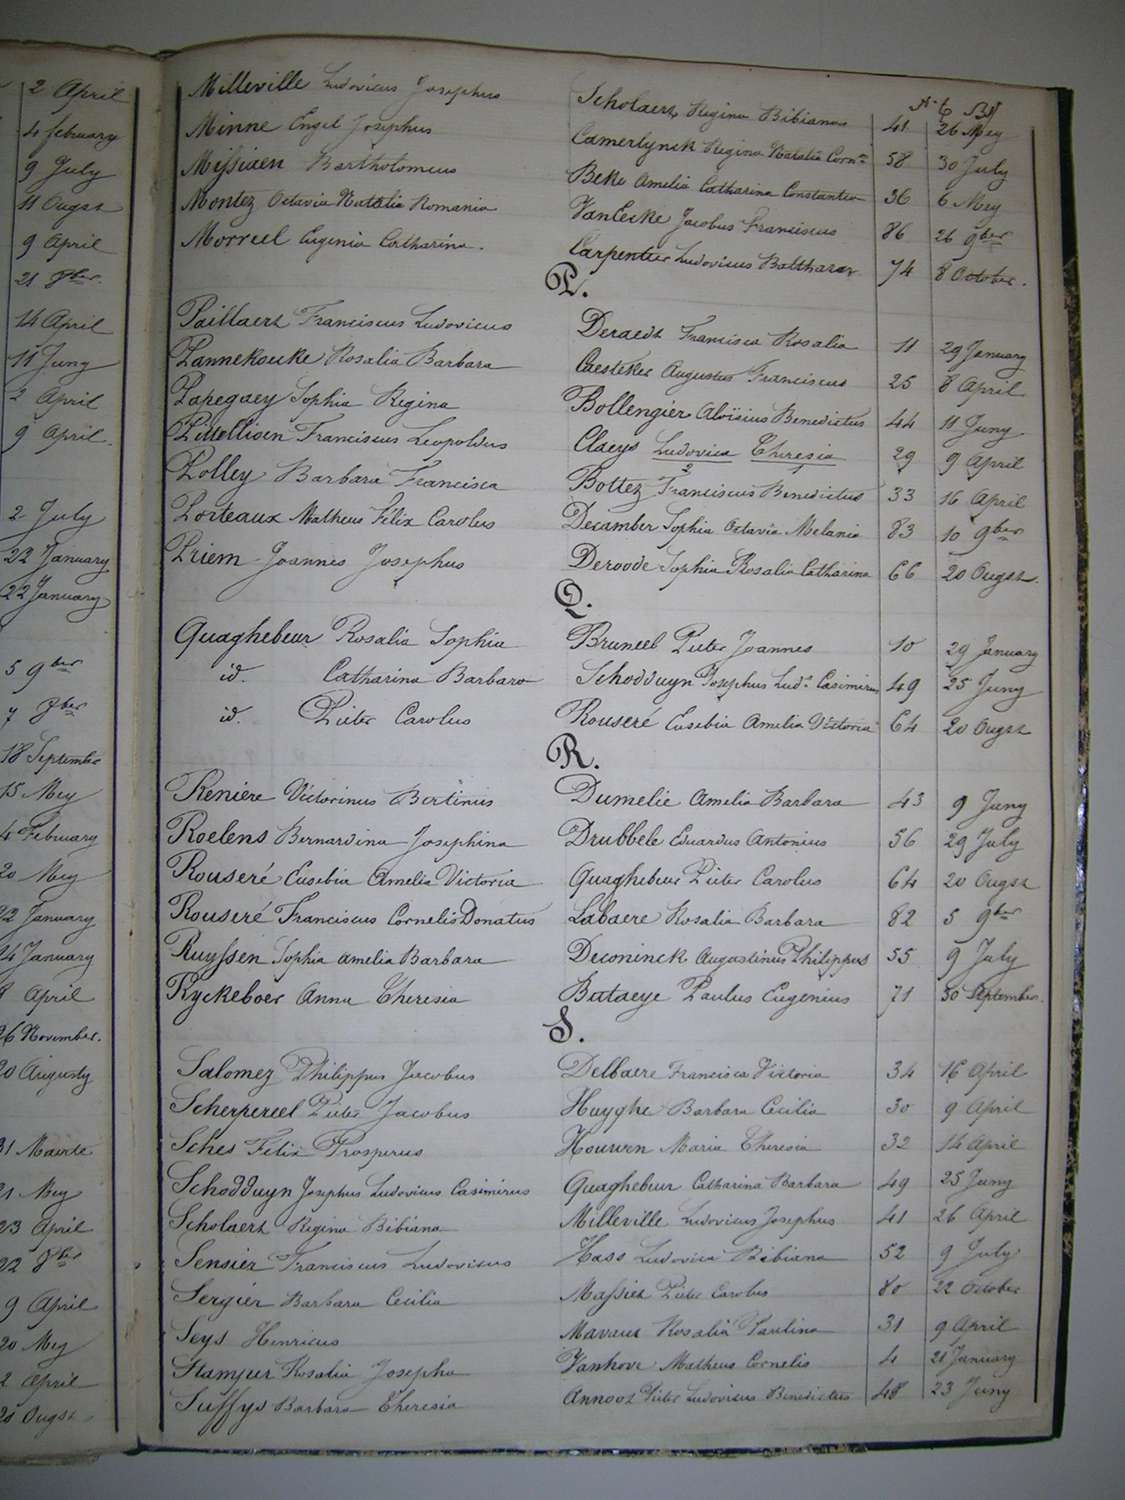 2 April
4 february
9 July
11 Ougst
9 April
21 8ber
14 April
11 Juny
2 April
9 April
2 July
22 January
22 January
5 9ber
7 8ber
18 September
15 Mey
4 February
20 Mey
22 January
24 January
9 April
26 November
20 Augusty
31 Maerte
21 Mey
23 April
22 8ber
9 April
20 Mey
2 April
20 Ougst
N°
Milleville Ludovicus Josephus Scholaert Regina Bibiana 41 26 Mey
Minne Engel Josephus Camerlynck Regina Natalia Corna 58 30 July
Missiaen Bartholomeus Beke Amelia Catharina Constantia 36 6 Mey
Montez Octavia Natalia Romania VanEecke Jacobus Franciscus 86 26 9ber
Morreel Eugenia Catharina Carpentier Ludovicus Balthazar 74 8 October.
P.
Paillaert Franciscus Ludovicus Deraedt Francisca Rosalia 11 29 January
Pannekoucke Rosalia Barbara Caesteker Augustus Franciscus 25 8 April
Papegaey Sophia Regina Bollengier Aloïsius Benedictus 44 11 Juny
Pittellioen Franciscus Leopoldus Claeys Ludovica Theresia 29 9 April
2 1
Polley Barbara Francisca Bottez Franciscus Benedictus 33 16 April
Porteaux Matheus Félix Carolus Decamber Sophia Octavia Melania 83 10 9ber
Priem Joannes Josephus Deroode Sophia Rosalia Catharina 66 20 Ougst.
Q.
Quaghebeur Rosalia Sophia Bruneel Pieter Joannes 10 29 January
id. Catharina Barbara Schodduyn Josephus Luds Casimirus 49 25 Juny
id. Pieter Carolus Rouseré Eusebia Amelia Victoria 64 20 Ougst
R.
Reniere Victorinus Bertinius Dumelie Amelia Barbara 43 9 Juny
Roelens Bernardina Josephina Drubbele Eduardus Antonius 56 29 July
Rouseré Eusebia Amelia Victoria Quaghebeur Pieter Carolus 64 20 Ougst
Rouseré Franciscus Cornelis Donatus Labaere Rosalia Barbara 82 5 9ber
Ruyssen Sophia Amelia Barbara Deconinck Augustinus Philippus 55 9 July
Ryckeboer Anna Theresia Bataeye Paulus Eugenius 71 30 September.
S.
Salomez Philippus Jacobus Delbaere Francisca Victoria 34 16 April
Scherpereel Pieter Jacobus Huyghe Barbara Cecilia 30 9 April
Sches Felix Prosperus Houwen Maria Theresia 32 14 April
Schodduyn Josephus Ludovicus Casimirus Quaghebeur Catharina Barbara 49 25 Juny
Scholaert Regina Bibiana Milleville Ludovicus Josephus 41 26 April
Sensier Franciscus Ludovicus Hass Ludovica Bibiana 52 9 July
Sergier Barbara Cecilia Massiet Pieter Carolus 80 22 October
Seys Henricus Mavaut Rosalia Paulina 31 9 April
Stamper Rosalia Josepha Vanhove Matheus Cornelis 4 21 January
Suffys Barbara Theresia Annoot Pieter Ludovicus Benedictus 48 23 Juny